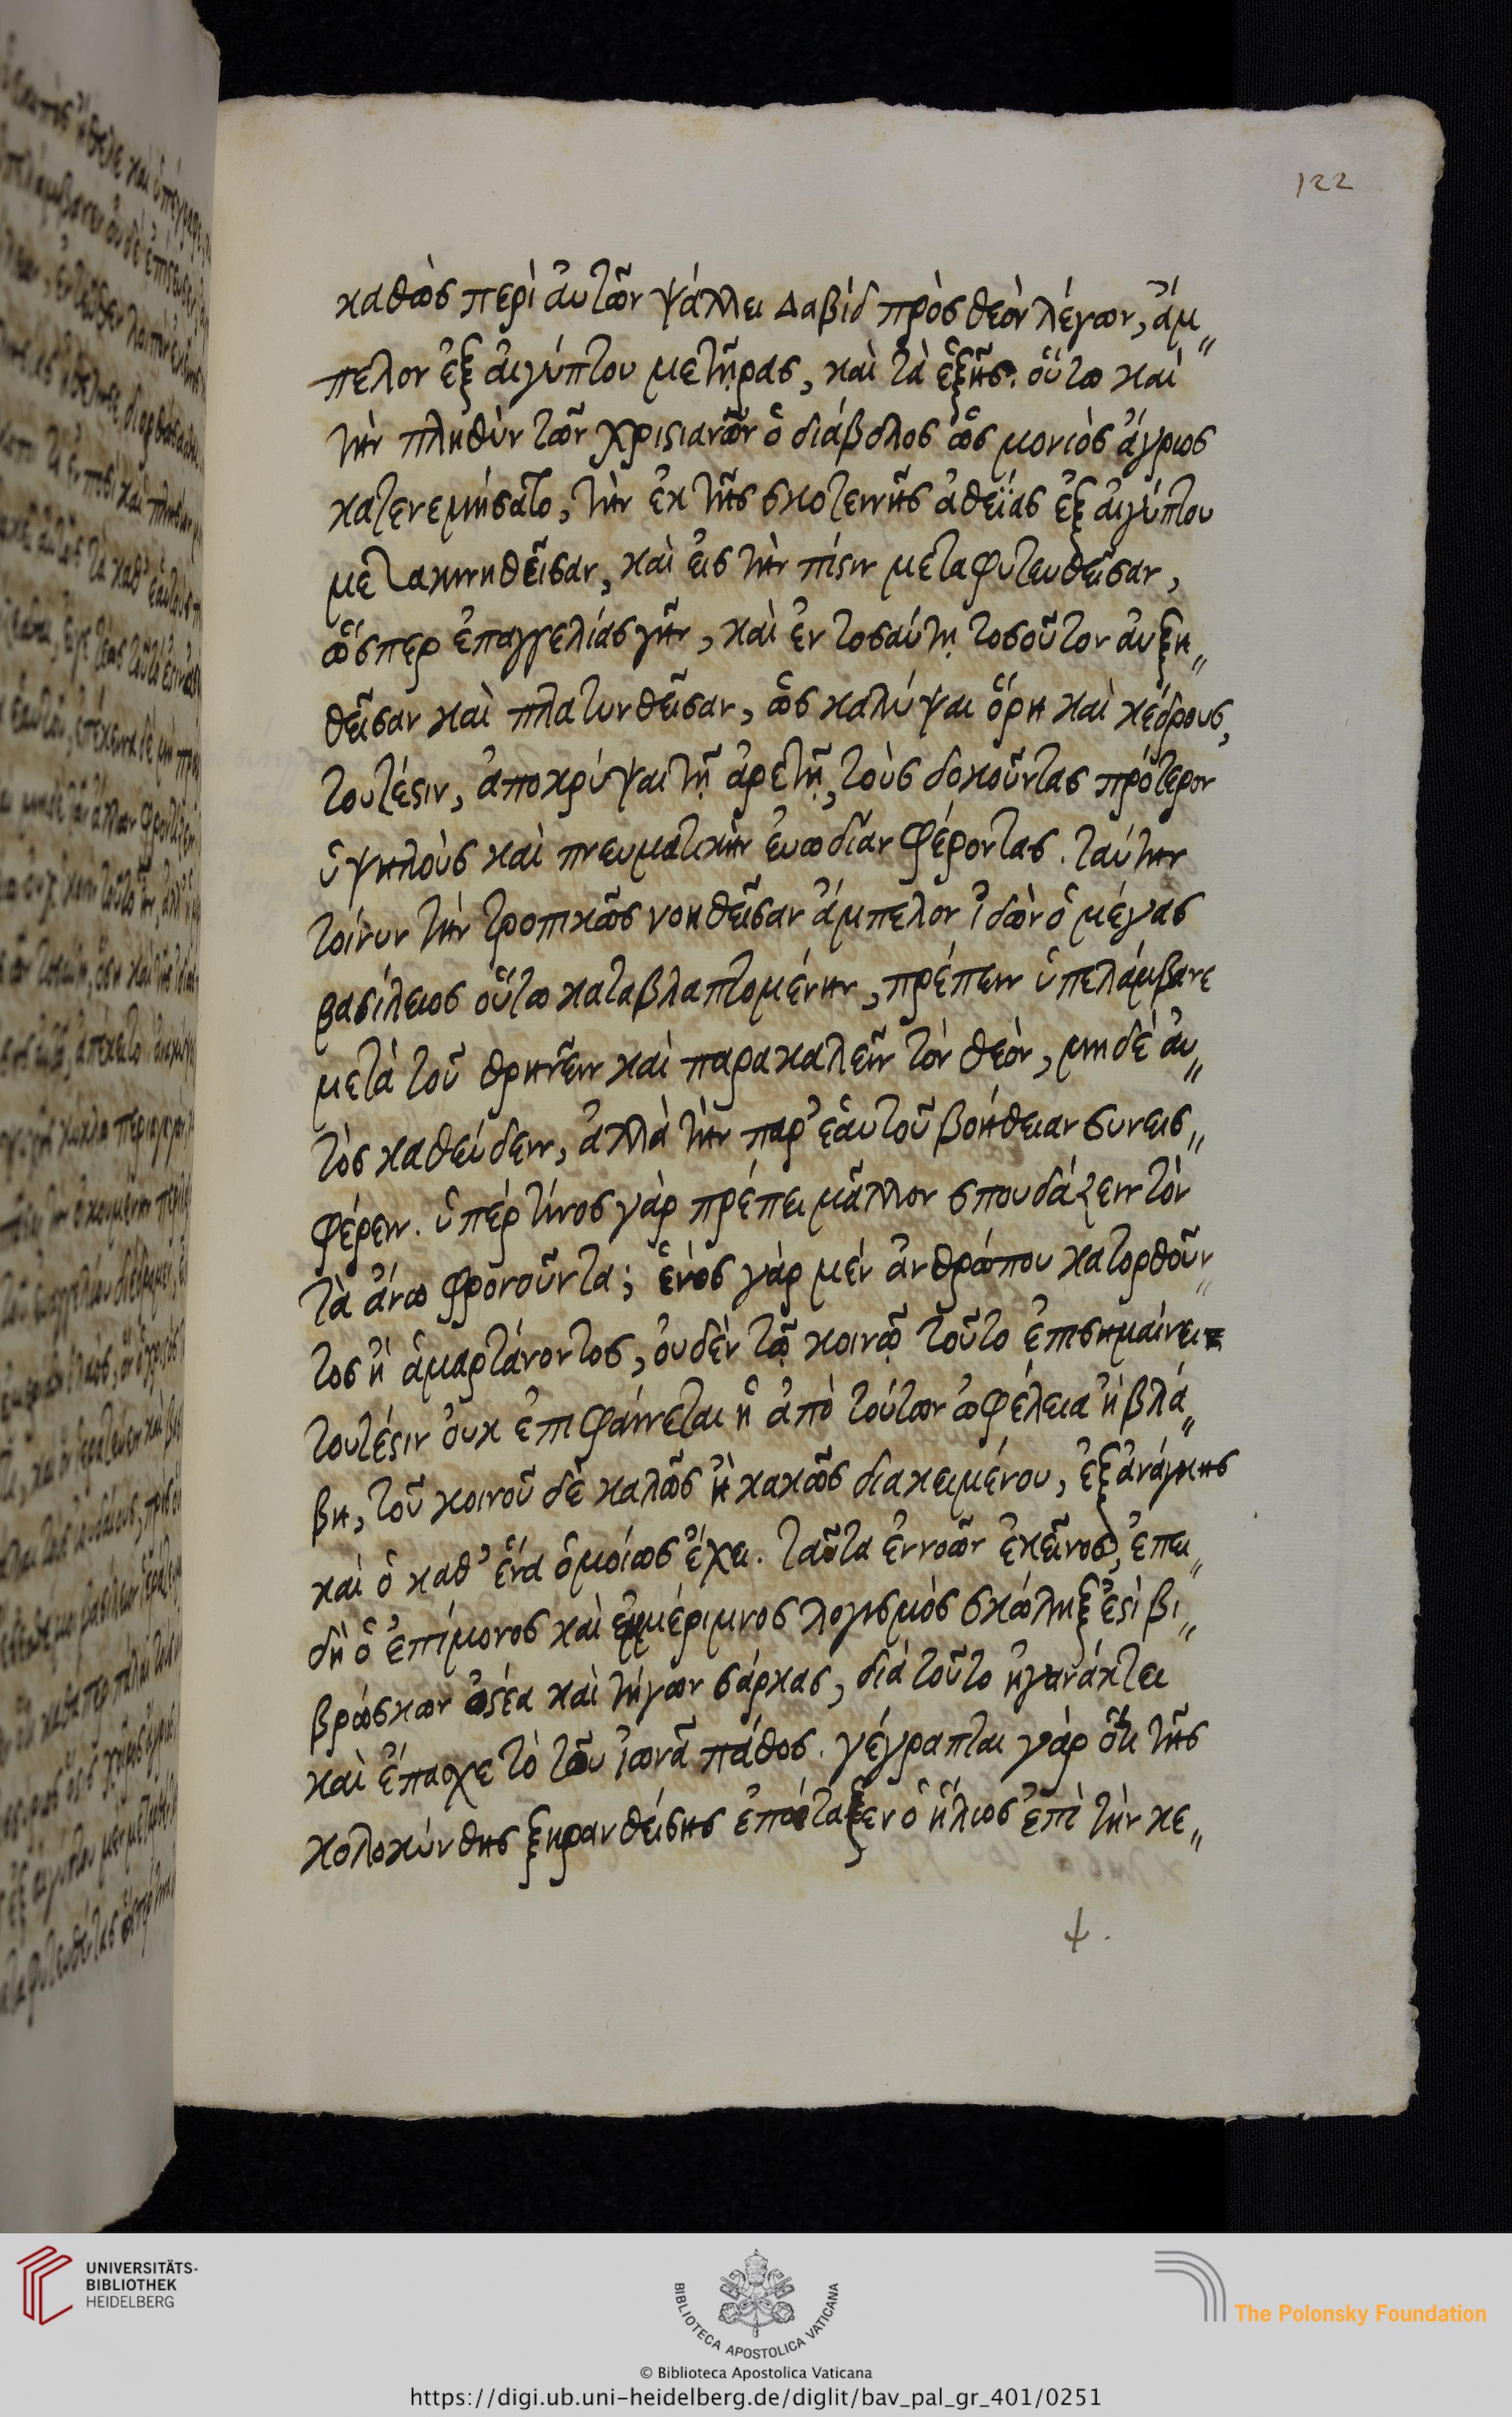 122
καθὼς περὶ ἀυτῶν ψάλλει Δαβὶδ πρὸς θεὸν λέγων, ἄμ〃
πελον ἐξ ἀιγύπτου μετῆρας, καὶ τὰ ἑξῆς. οὕτω καὶ
τὴν πληθὺν τῶν χριϛιανῶν ὁ διάβολος ὡς μονιὸς ἄγριος
κατενεμήσατο, τὴν ἐκ τῆς σκοτεινῆς ἀθεΐας ἐξ ἀιγύπτου
μετακινηθεῖσαν, καὶ ἐις τὴν πίϛιν μεταφυτευθεῖσαν,
ὥσπερ ἐπαγγελίας γῆν, καὶ ἐν τοσαύτῃ τοσοῦτον ἀυξη〃
θεῖσαν καὶ πλατυνθεῖσαν, ὡς καλύψαι ὄρη καὶ κέδρους,
τουτέϛιν, ἀποκρύψαι τῇ ἀρετῇ, τοὺς δοκοῦντας πρότερον
ὑψηλοὺς καὶ πνευματικὴν ἐυωδίαν φέροντας. ταύτην
τοίνυν τὴν τροπικῶς νοηθεῖσαν ἄμπελον ἰδὼν ὁ μέγας
βασίλειος οὕτω καταβλαπτομένην, πρέπειν ὑπελάμβανε
μετὰ τοῦ θρηνεῖν καὶ παρακαλεῖν τὸν θεὸν, μηδὲ ἀυ〃
τὸς καθεύδειν, ἀλλὰ τὴν παρ' ἑαυτοῦ βοήθειαν συνεισ〃
φέρειν. ὑπὲρ τίνος γὰρ πρέπει μᾶλλον σπουδάζειν τὸν
τὰ ἄνω φρονοῦντα; ἑνὸς γὰρ μὲν ἀνθρώπου κατορθοῦν〃
τος ἢ ἁμαρτάνοντος, ὀυδὲν τῷ κοινῷ τοῦτο ἐπισημαίνει
τουτέϛιν ὀυκ ἐπιφαίνεται ἡ ἀπὸ τούτων ὠφέλεια ἢ βλά〃
βη, τοῦ κοινοῦ δὲ καλῶς ἢ κακῶς διακειμένου, ἐξ ἀνάγκης
καὶ ὁ καθ' ἕνα ὁμοίως ἔχει. ταῦτα ἐννοῶν ἐκεῖνος, ἐπει〃
δὴ ὁ ἐπίμονος καὶ ἐμμέριμνος λογισμὸς σκώληξ ἐϛὶ βι〃
βρώσκων ὀϛέα καὶ τήγων σάρκας, διὰ τοῦτο ἠγανάκτει
καὶ ἔπασχε τὸ τοῦ ἰωνᾶ πάθος. γέγραπται γὰρ ὅτι τῆς
κολοκύνθης ξηρανθείσης ἐπάταξεν ὁ ἥλιος ἐπὶ τὴν κε〃
ψ.
UNIVERSITÄTS-
BIBLIOTHEK
HEIDELBERG
BIBLIOTECA APOSTOLICA VATICANA
The Polonsky Foundation
© Biblioteca Apostolica Vaticana
https://digi.ub.uni-heidelberg.de/diglit/bav_pal_gr_401/0251